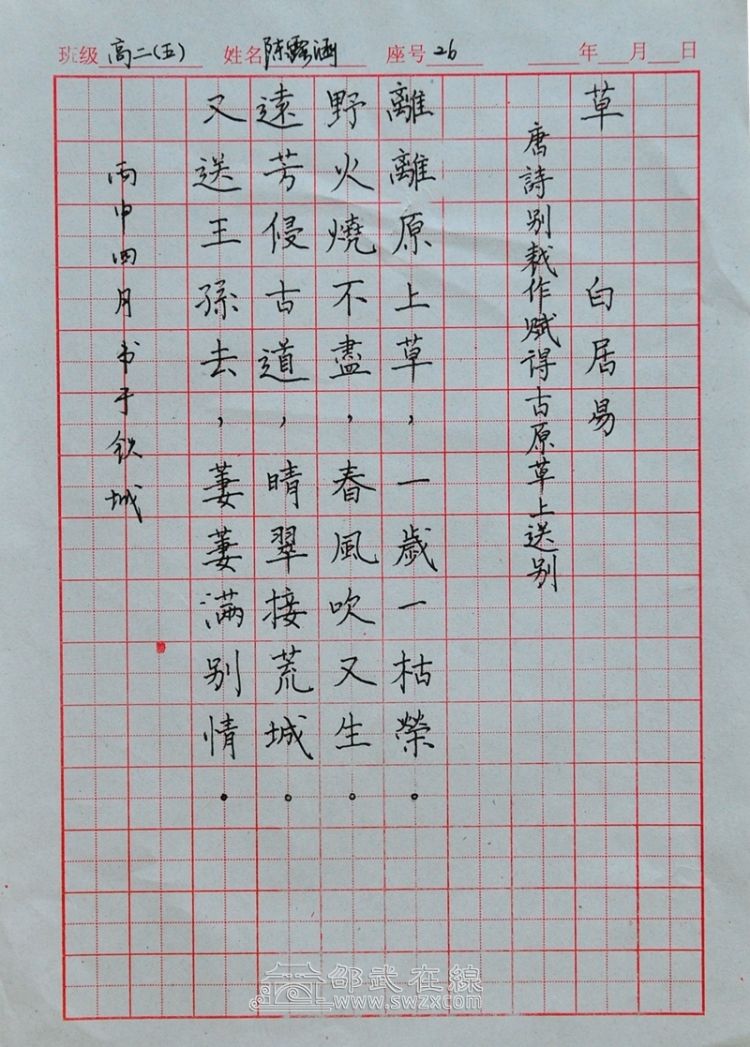 班级 高二(五) 姓名 陈露涵 座号 26 年 月 日
草 白居易
唐詩别裁作赋得古原草上送别
離離原上草，一歲一枯榮。
野火燒不盡，春風吹又生。
遠芳侵古道，晴翠接荒城。
又送王孫去，萋萋满别情。
丙申四月书于铁城
邵武在線
www.swzx.com